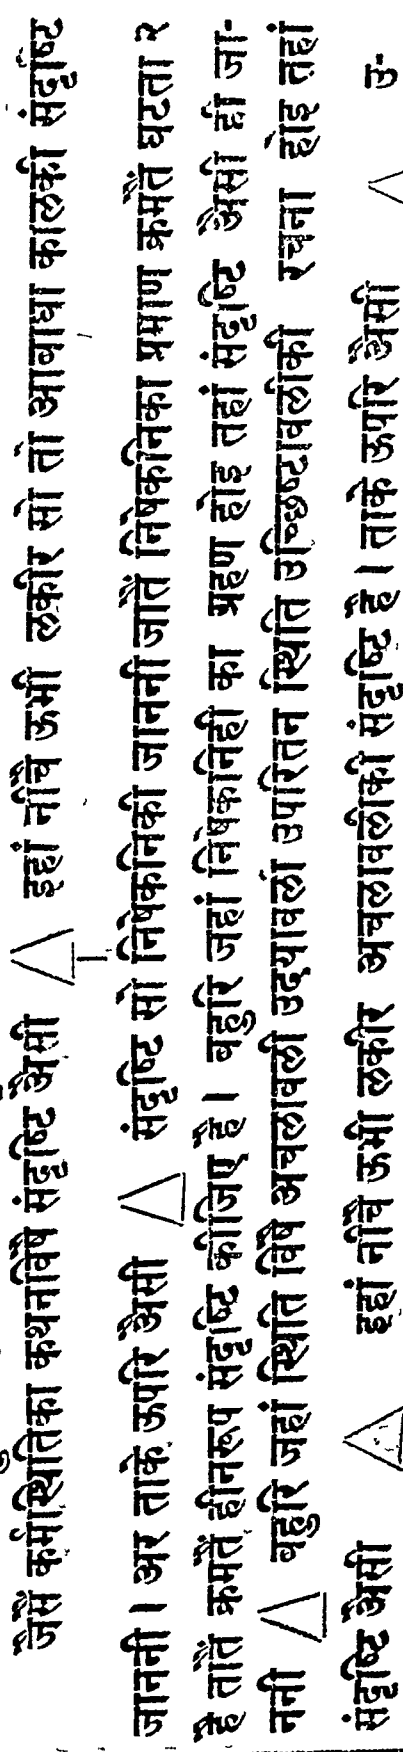 जैसैं कर्मस्थितिका कथनविषै संदृष्टि अैसी इहां नीचै ऊभी लकीर सो तो आबाधा कालकी संदृष्टि
जाननी। अर ताके ऊपरि अैसी संदृष्टि सो निषेकनिकी जाननी जातैं निषेकनिका प्रमाण क्रमतैं घटता २
है तातैं क्रमतैं हीनरूप संदृष्टि कीजिए है। बहुरि जहां निषेकनिही का ग्रहण होइ तहां संदृष्टि अैसी ही जा-
ननी बहुरि जहां स्थिति विषै अचलावली उदयावली उपरितन स्थिति उच्छिष्टावलीकी रचना होइ तहां
संदृष्टि अैसी इहां नीचै ऊभी लकीर अचलावलीकी संदृष्टि है। ताके ऊपरि अैसी उ-